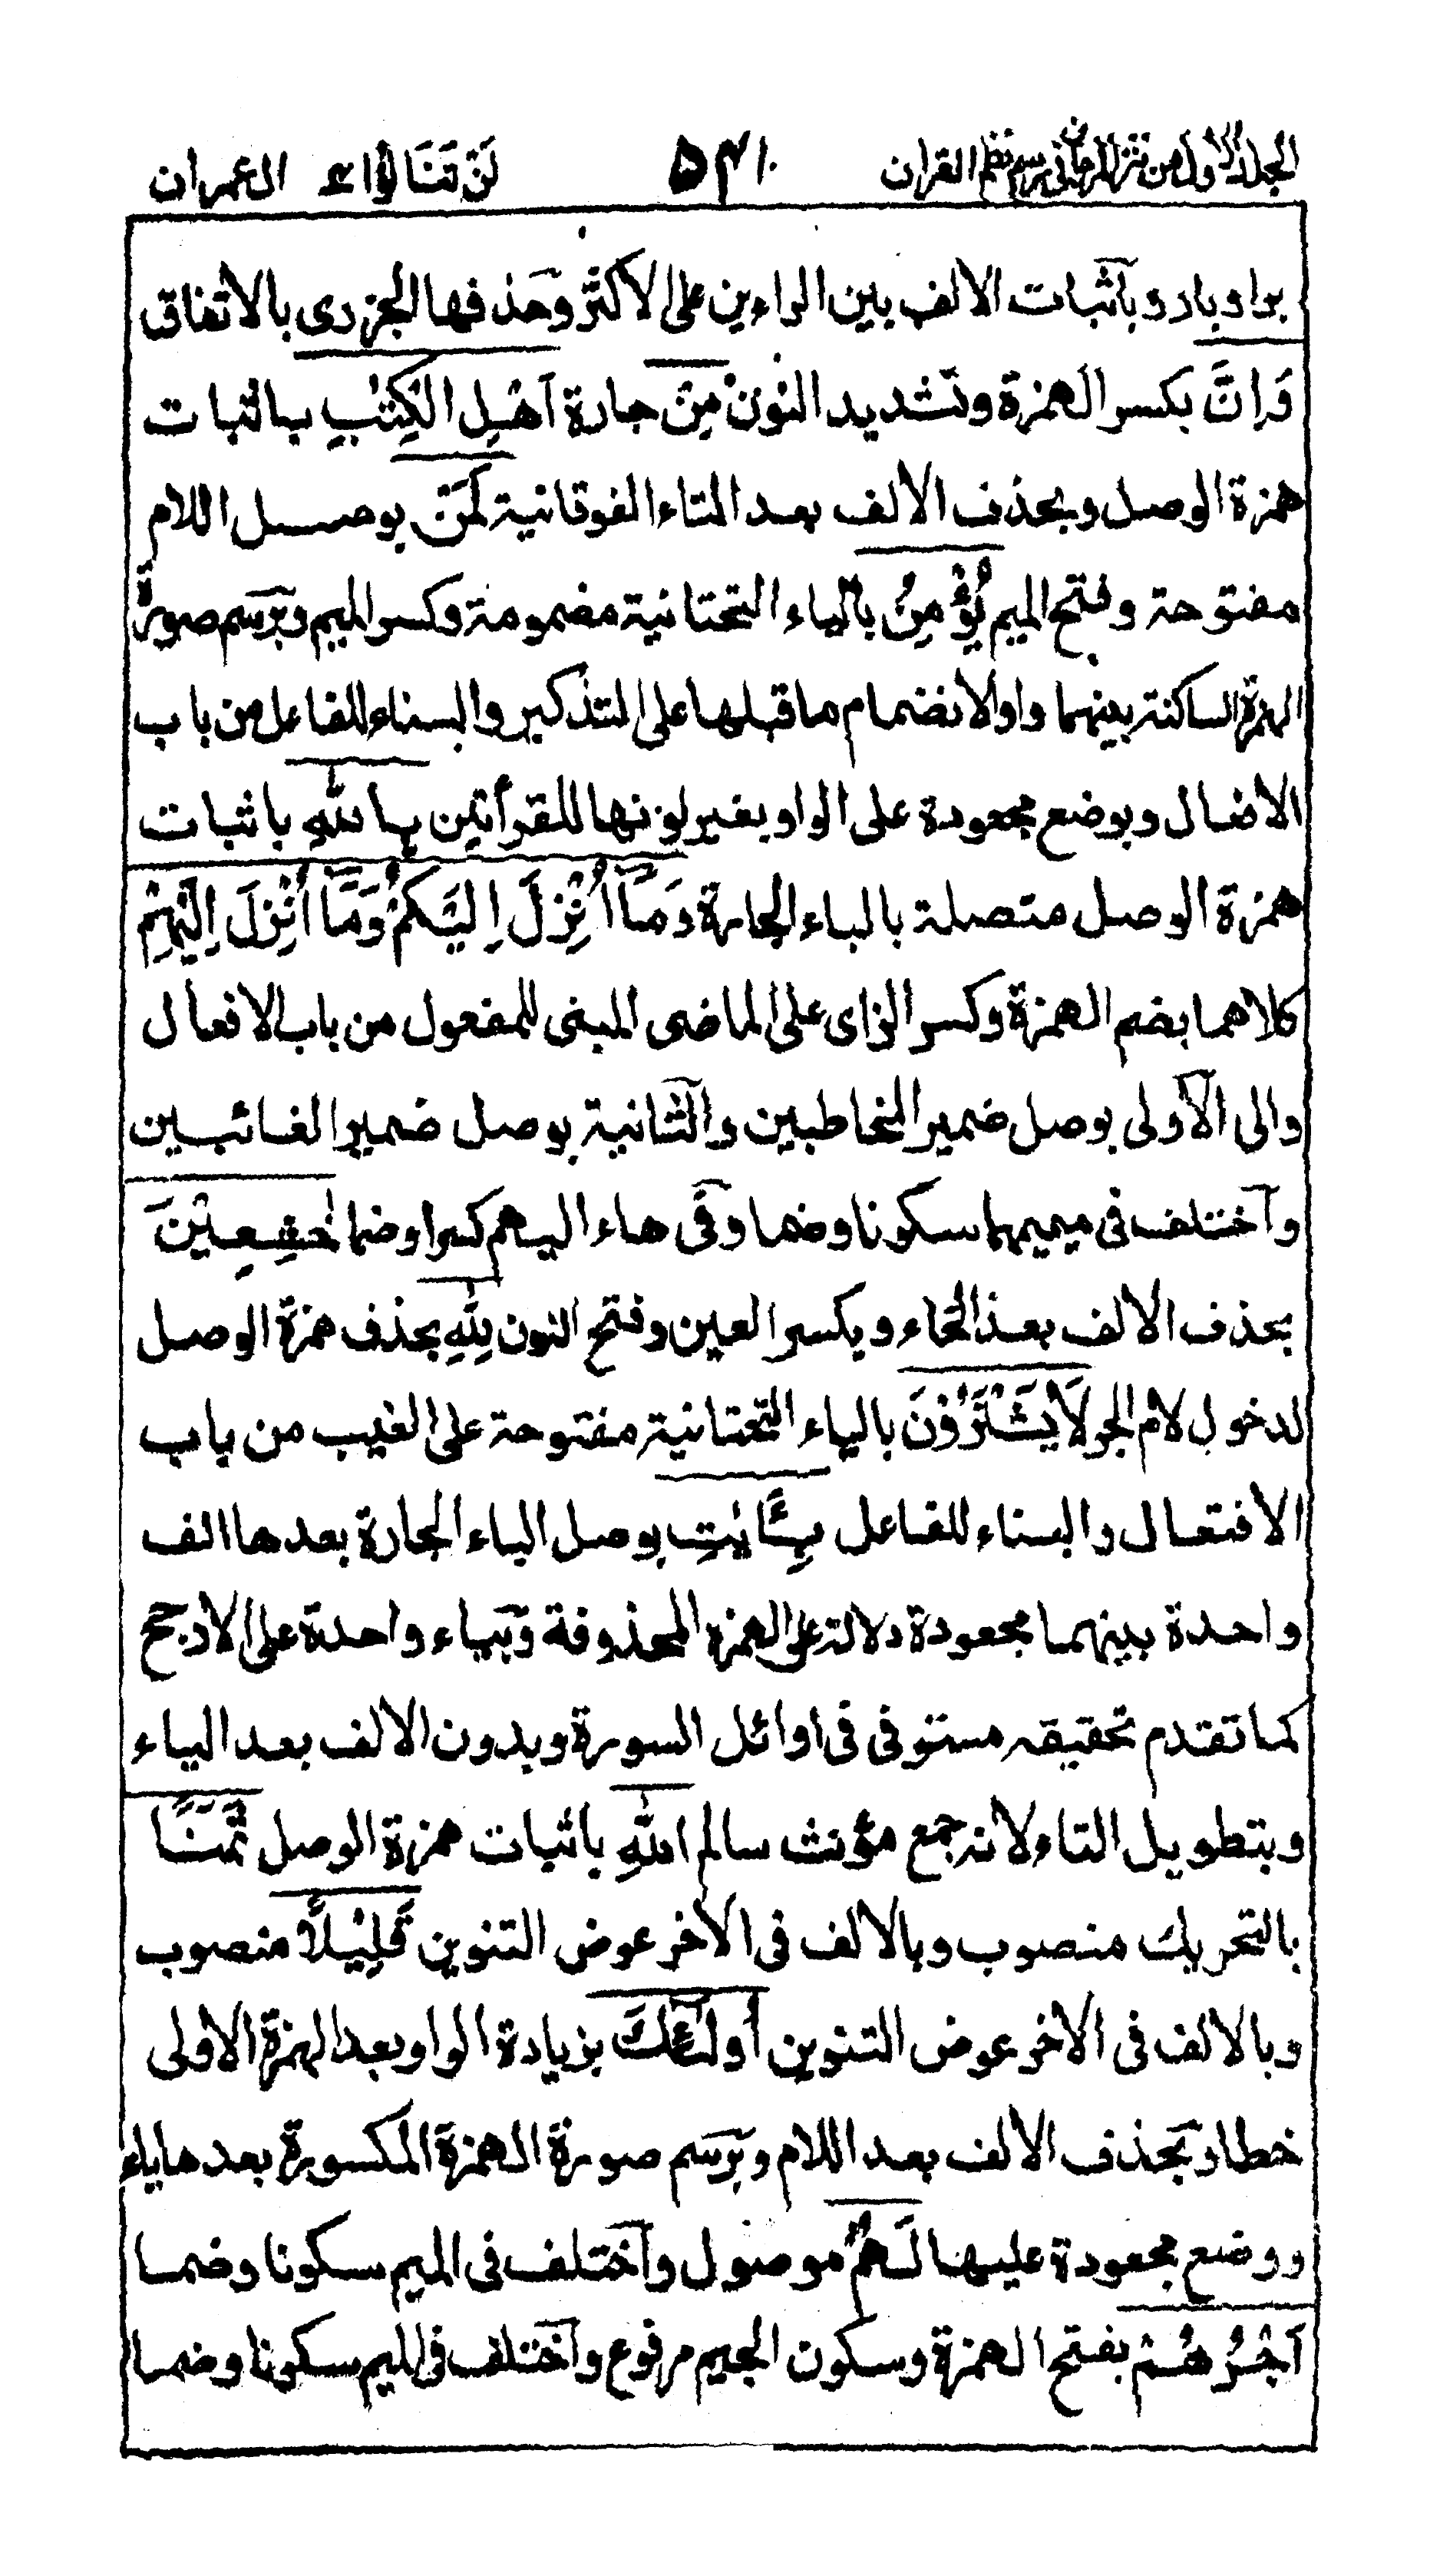 الجلد الاول من نثر المرجان فى رسم نظم القران ۵۴۱ لَنْ تَنَالُوا ٤ ال عمران
برا وبار وباثبات الالف بين الراءين على الاكثر وحذفها الجزرى بالاتفاق
وَاِنَّ بكسر الهمزة وتشديد النون مِنْ جارة اَهْلِ الْكِتٰبِ باثبات
همزة الوصل وبحذف الالف بعد التاء الفوقانية لَمَنْ بوصل اللام
مفتوحة وفتح الميم يُؤْمِنُ بالياء التحتانية مضمومة وكسر الميم وبرسم صورة
الهمزة الساكنة بينهما واوالانضمام ما قبلها على التذكير والبناء للفاعل من باب
الافعال وبوضع مجعودة على الواو بغير لونها للقرأتين بِاللّٰهِ باثبات
همزة الوصل متصلة بالباء الجارة وَمَآ اُنْزِلَ اِلَيْكُمْ وَمَآ اُنْزِلَ اِلَيْهِمْ
كلاهما بضم الهمزة وكسر الزاى على الماضى المبنى للمفعول من باب الافعال
والى الاولى بوصل ضمير المخاطبين والثانية بوصل ضمير الغائبين
واختلف فى ميميهما سكونا وضما وفى هاء اليهم كسرا وضما خٰشِعِيْنَ
بحذف الالف بعد الخاء وبكسر العين وفتح النون لِلّٰهِ بحذف همزة الوصل
لدخول لام الجر لَا يَشْتَرُوْنَ بالياء التحتانية مفتوحة على الغيب من باب
الافتعال والبناء للفاعل بِـَٔايٰتِ بوصل الباء الجارة بعدها الف
واحدة بينهما مجعودة دلالة على الهمزة المحذوفة وبياء واحدة على الارجح
كما تقدم تحقيقه مستوفى فى اوائل السورة وبدون الالف بعد الياء
وبتطويل التاء لانه جمع مؤنث سالم اللّٰهِ باثبات همزة الوصل ثَمَنًا
بالتحريك منصوب وبالالف فى الاخر عوض التنوين قَلِيْلًا منصوب
وبالالف فى الاخر عوض التنوين اُولٰٓئِكَ بزيادة الواو بعد الهمزة الاولى
خطا وبحذف الالف بعد اللام وبرسم صورة الهمزة المكسورة بعدها ياء
ووضع مجعودة عليها لَهُمْ موصول واختلف فى الميم سكونا وضما
اَجْرُهُمْ بفتح الهمزة وسكون الجيم مرفوع واختلف فى الميم سكونا وضما